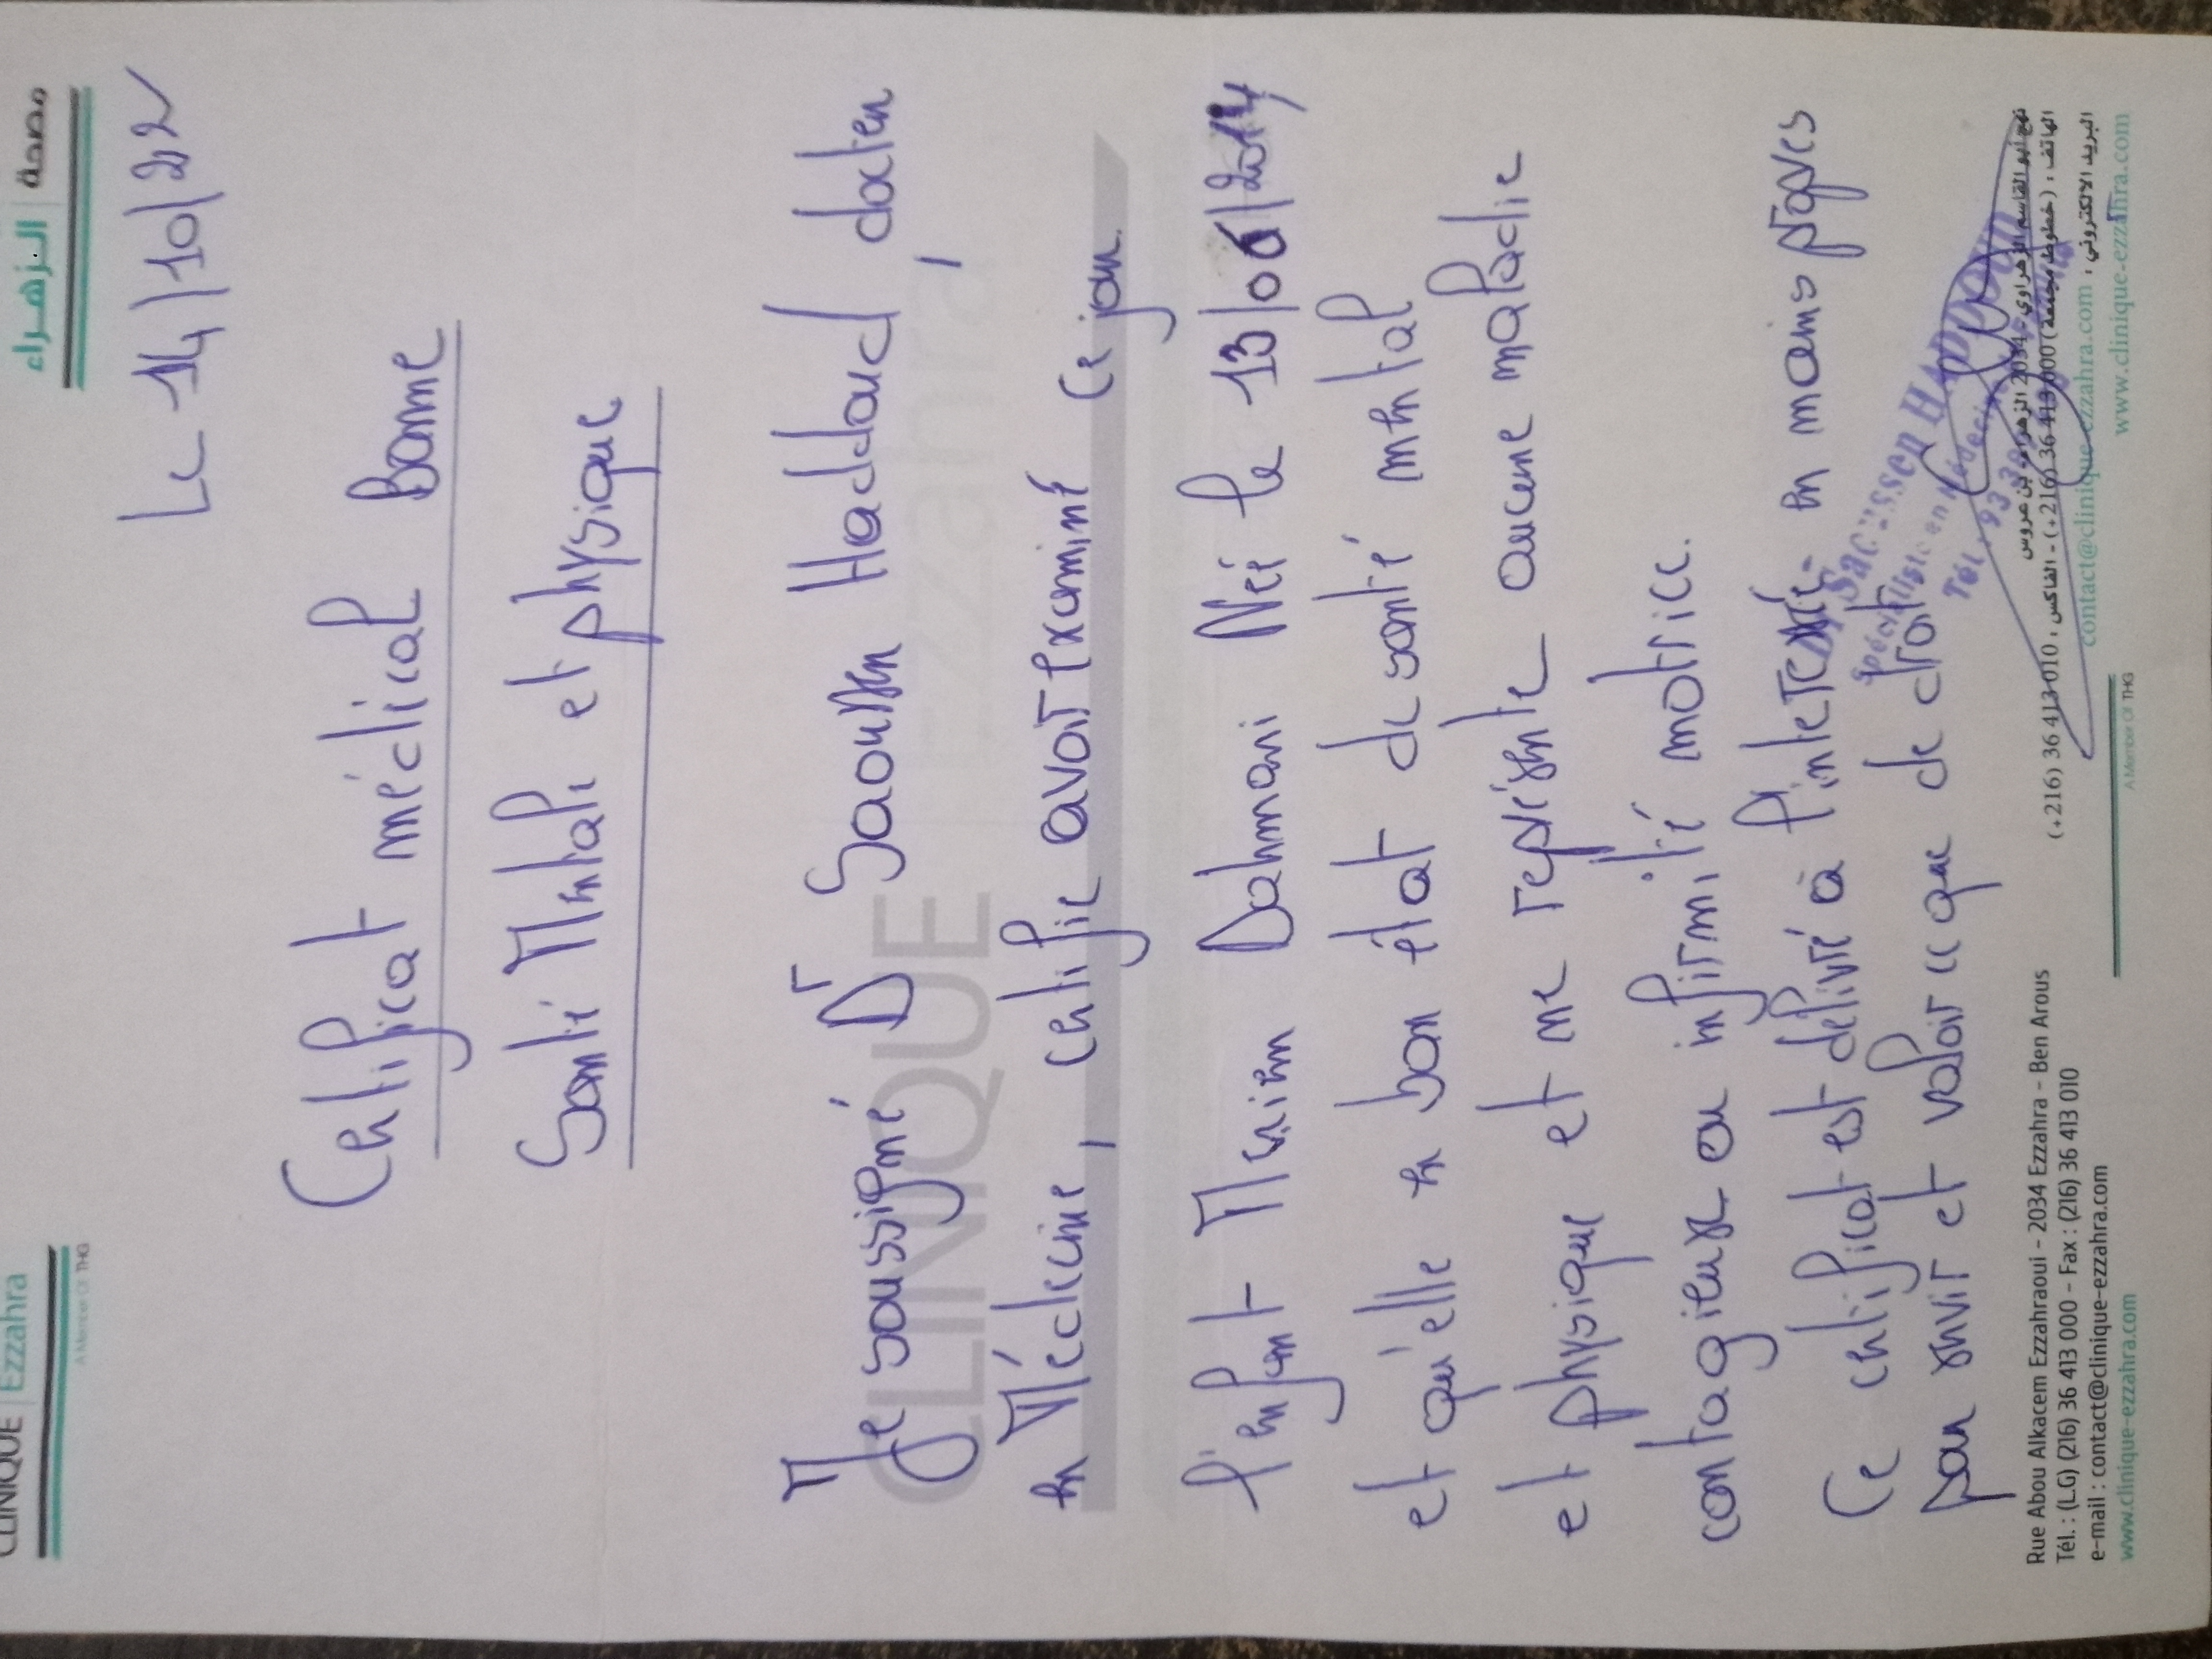 CLINIQUE Ezzahra
مصحة الزهراء
A Member Of THG
Le 14/10/22
Certificat médical Bonne
Santé Mentale et physique
CLINIQUE Ezzahra
Je soussigné Dr Saoussen Haddad, docteur
en Médecine, certifie avoir examiné ce jour
l'enfant Meriem Dahmani Née le 13/06/2014
et qu'elle en bon état de santé mental
et physique et ne représente aucune maladie
contagieuse ou infirmité motrice.
Ce certificat est délivré à l'intéressé en mains propres
pour servir et valoir ce que de droit
Dr Saoussen HADDAD
Spécialiste en Médecine
Tél : 93
Rue Abou Alkacem Ezzahraoui - 2034 Ezzahra - Ben Arous
Tél. : (L.G) (216) 36 413 000 - Fax : (216) 36 413 010
e-mail : contact@clinique-ezzahra.com
www.clinique-ezzahra.com
A Member Of THG
نهج أبو القاسم الزهراوي - 2034 الزهراء - بن عروس
الهاتف : (خطوط مجمعة) 000 413 36 (216+) - الفاكس : 010 413 36 (216+)
البريد الالكتروني : contact@clinique-ezzahra.com
www.clinique-ezzahra.com